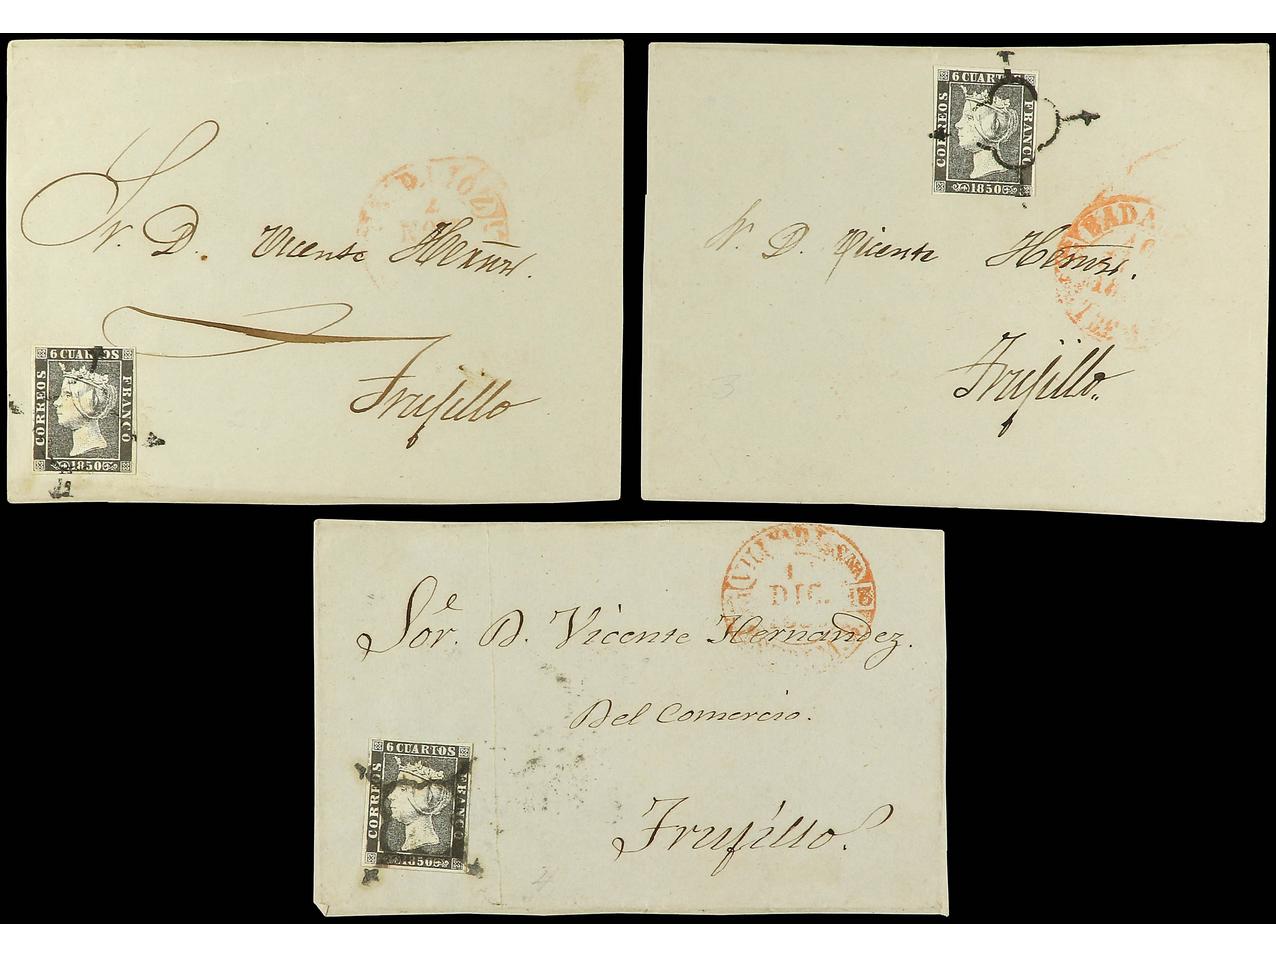 Sr. D. Vicente Hernz.
Trujillo
6 CUARTOS
CORREOS
FRANCO
1850
6 CUARTOS
CORREOS
FRANCO
1850
Sr. D. Vicente Hernz.
Trujillo.
1
DIC.
Sor. D. Vicente Hernandez.
Del Comercio.
Trujillo.
6 CUARTOS
CORREOS
FRANCO
1850